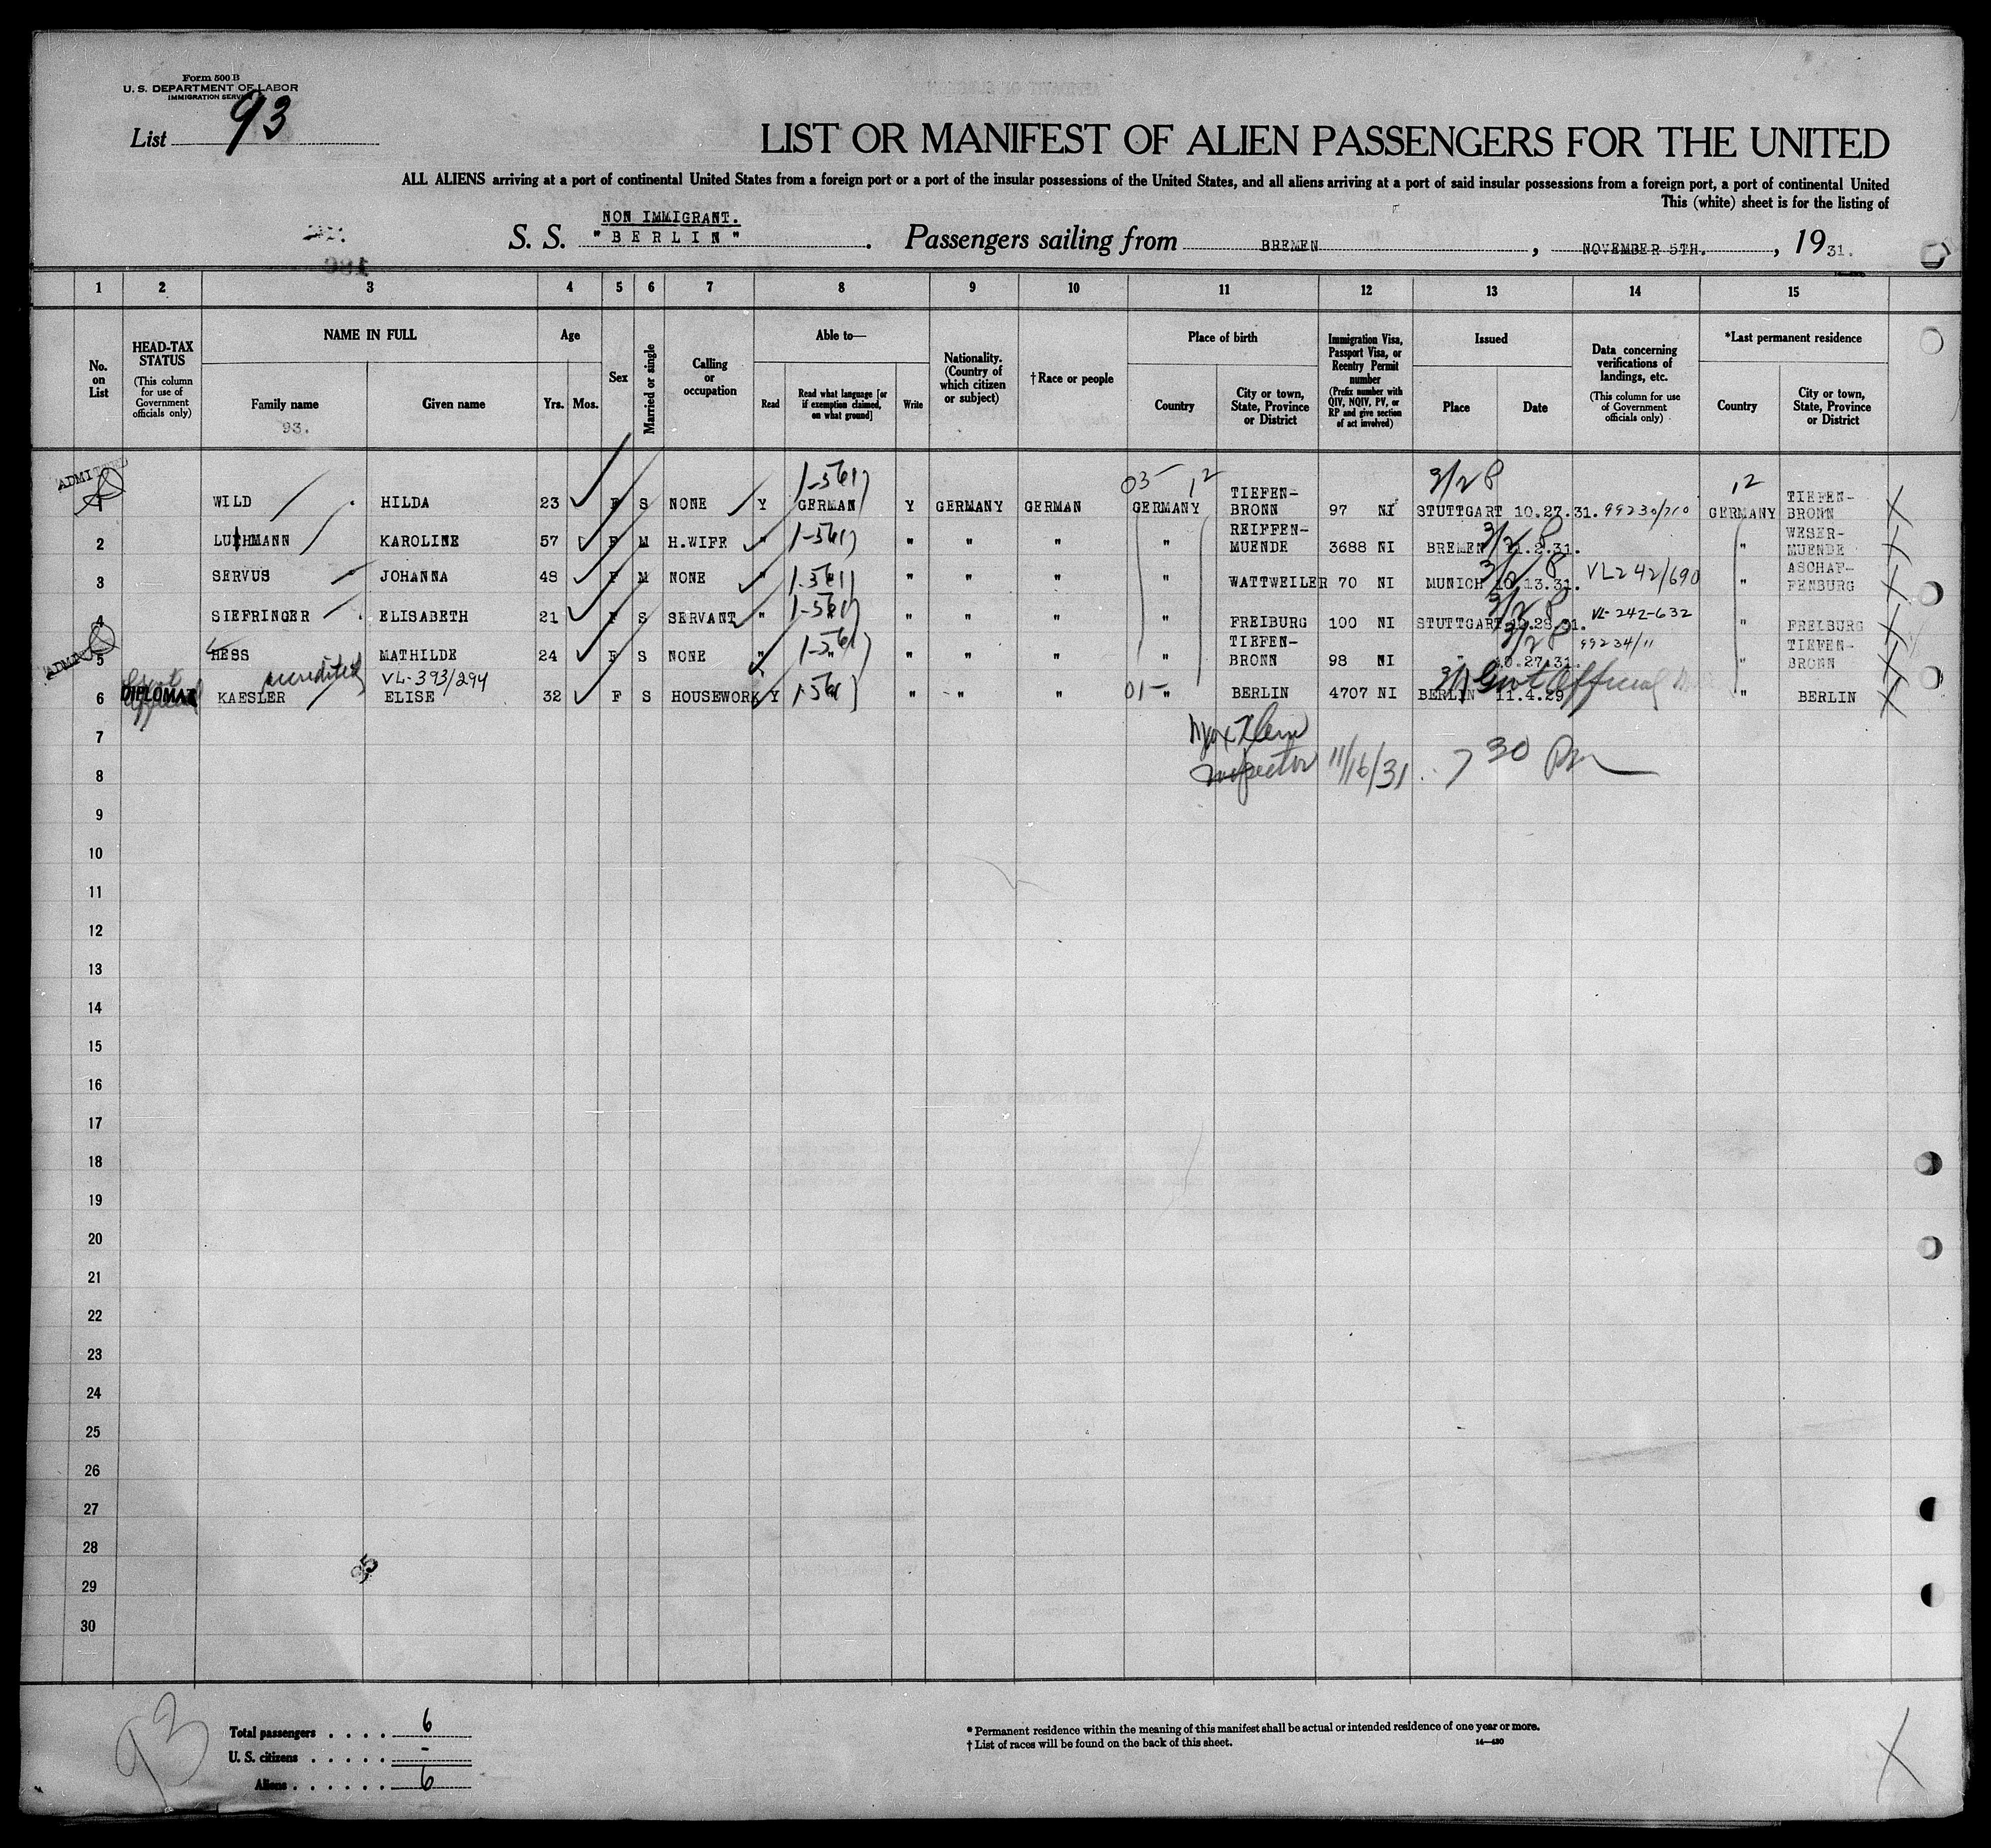 Form 500 B
U. S. DEPARTMENT OF LABOR
IMMIGRATION SERVICE
List 93
LIST OR MANIFEST OF ALIEN PASSENGERS FOR THE UNITED
ALL ALIENS arriving at a port of continental United States from a foreign port or a port of the insular possessions of the United States, and all aliens arriving at a port of said insular possessions from a foreign port, a port of continental United
This (white) sheet is for the listing of
NON IMMIGRANT.
S. S. "BERLIN". Passengers sailing from BREMEN, NOVEMBER 5TH., 1931.
1 2 3 4 5 6 7 8 9 10 11 12 13 14 15
No. on List
HEAD-TAX STATUS (This column for use of Government officials only)
NAME IN FULL
Family name
93.
Given name
Age
Yrs. Mos.
Sex
Married or single
Calling or occupation
Able to—
Read
Read what language [or if exemption claimed, on what ground]
Write
Nationality. (Country of which citizen or subject)
† Race or people
Place of birth
Country
City or town, State, Province or District
Immigration Visa, Passport Visa, or Reentry Permit number (Prefix number with QIV, NQIV, PV, or RP and give section of act involved)
Issued
Place
Date
Data concerning verifications of landings, etc. (This column for use of Government officials only)
*Last permanent residence
Country
City or town, State, Province or District
ADMITTED
1-561) 03- 12 3/28 12
1 WILD HILDA 23 F S NONE Y GERMAN Y GERMANY GERMAN GERMANY TIEFEN-BRONN 97 NI STUTTGART 10.27.31. 99230/710 GERMANY TIEFEN-BRONN X
2 LUTHMANN KAROLINE 57 F M H.WIFE " 1-561) " " " " REIFFEN-MUENDE 3688 NI BREMEN 3/28 11.2.31. " WESER-MUENDE X
3 SERVUS JOHANNA 48 F M NONE " 1-561) " " " " WATTWEILER 70 NI MUNICH 3/28 10.13.31. VL242/690 " ASCHAF-FENBURG X
4 SIEFRINGER ELISABETH 21 F S SERVANT " 1-561) " " " " FREIBURG 100 NI STUTTGART 3/28 10.28.31. VL-242-632 " FREIBURG X
5 HESS MATHILDE 24 F S NONE " 1-561) " " " " TIEFEN-BRONN 98 NI " 3/28 10.27.31. 99234/11 " TIEFEN-BRONN X
DIPLOMAT accredited VL-393/294 3/1 Govt Official
6 KAESLER ELISE 32 F S HOUSEWORK Y 1-561) " " " 01- " BERLIN 4707 NI BERLIN 11.4.29 " BERLIN X
7 Max Klein
8 Inspector 11/16/31. 7 30 Pm
9
10
11
12
13
14
15
16
17
18
19
20
21
22
23
24
25
26
27
28
29
30
93
Total passengers . . . . 6
U. S. citizens . . . . . -
Aliens . . . . . . 6
* Permanent residence within the meaning of this manifest shall be actual or intended residence of one year or more.
† List of races will be found on the back of this sheet.
14—430
X